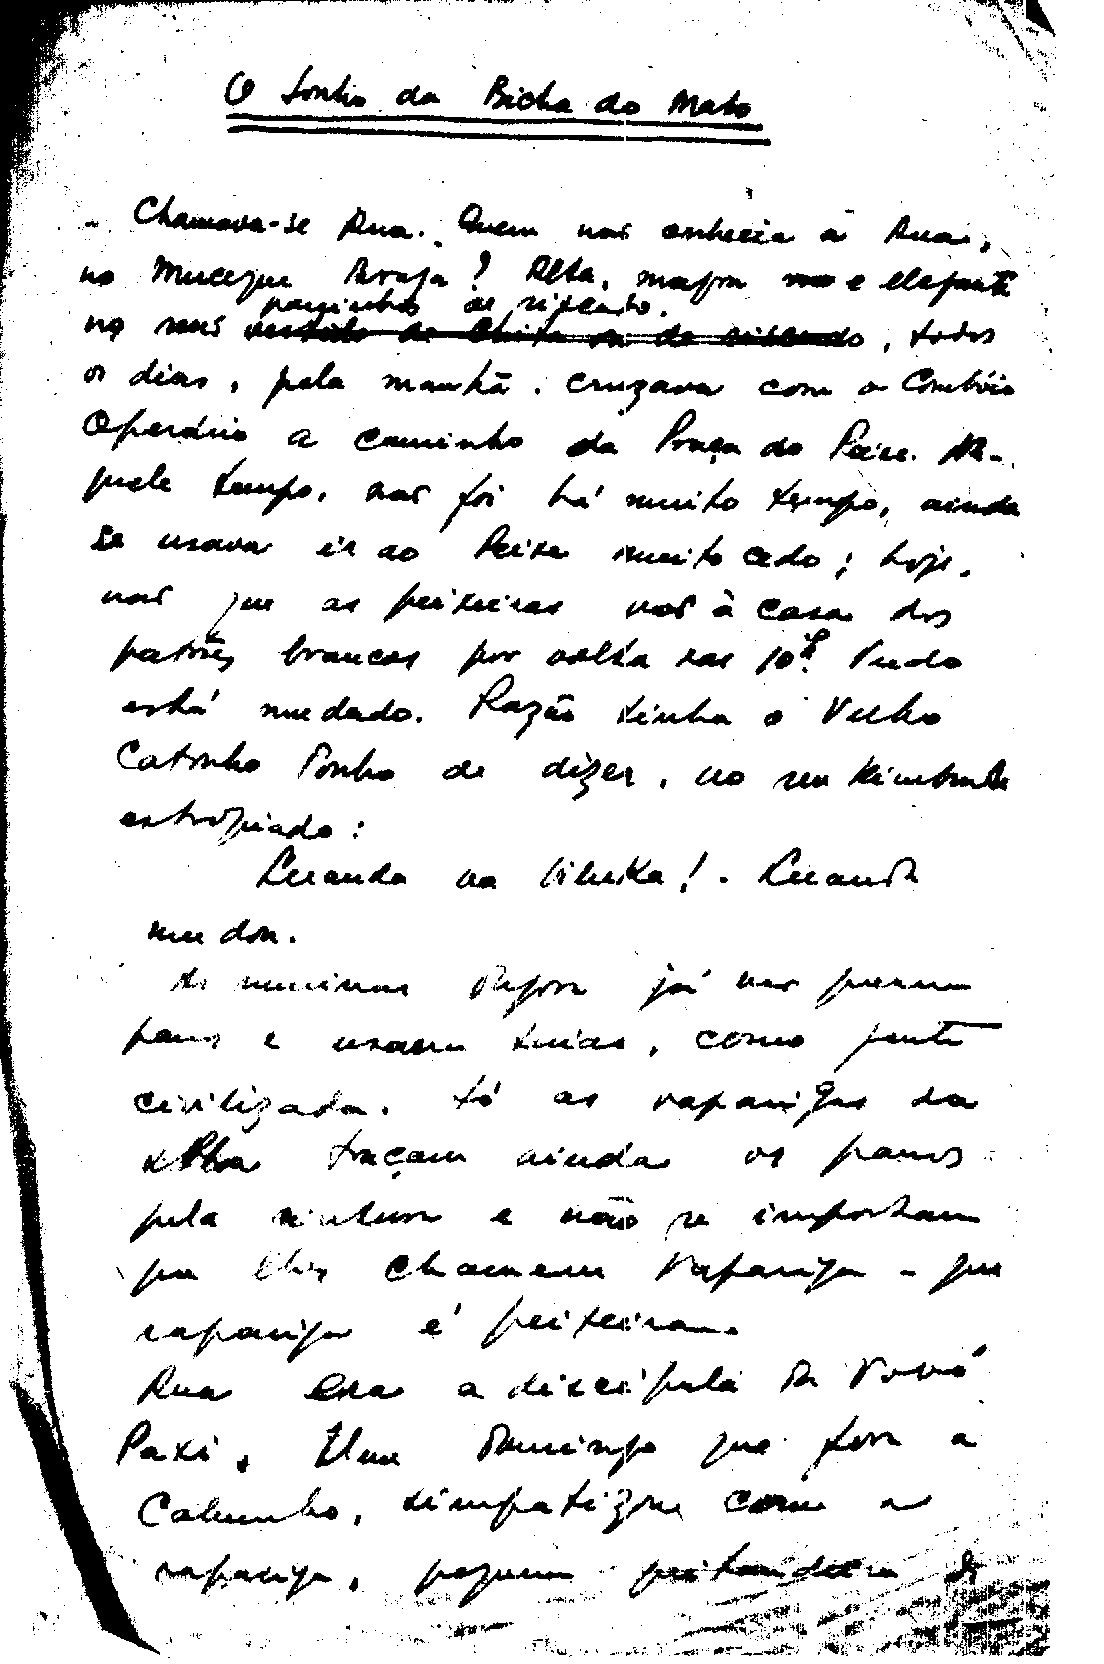 O Sonho da Bicha do Mato
- Chamava-se Rua. Quem não conhecia a Rua,
no Muceque Braga? Alta, magra e elegante
paninhos de riscado.
no seus vestido de chita ou de riscado, todos
os dias, pela manhã. cruzava com o Combóio
Operário a caminho da Praça do Peixe. Na-
quele tempo, não foi há muito tempo, ainda
se usava ir ao Peixe muito cedo; hoje,
não que as peixeiras vão à casa dos
patrões brancos por volta das 10h. Tudo
está mudado. Razão tinha o Velho
Catonho Tonho de dizer, no seu Kimbundo
estropiado:
Luanda ua! Luanda
mudou.
As meninas agora já não querem
panos e usam saias, como gente
civilizada. Só as raparigas da
Ilha traçam ainda os panos
pela cintura e não se importam
que lhes chamem rapariga - que
rapariga é peixeira.
Rua era a discípula da Vovó
Paxi. Um Domingo que fora a
Calumbo, simpatizou com a
rapariga, pequena quitandeira de